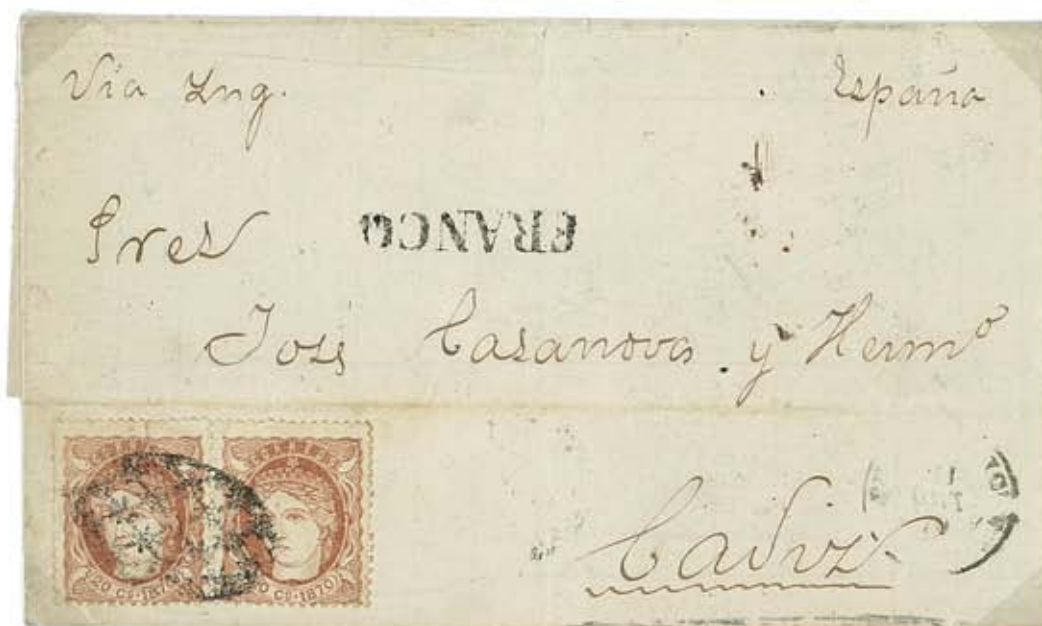 Via Ing. España
Sres
FRANCO
José Casanova y Hermº
20 Cs·187 20 Cs·1870
Cadiz